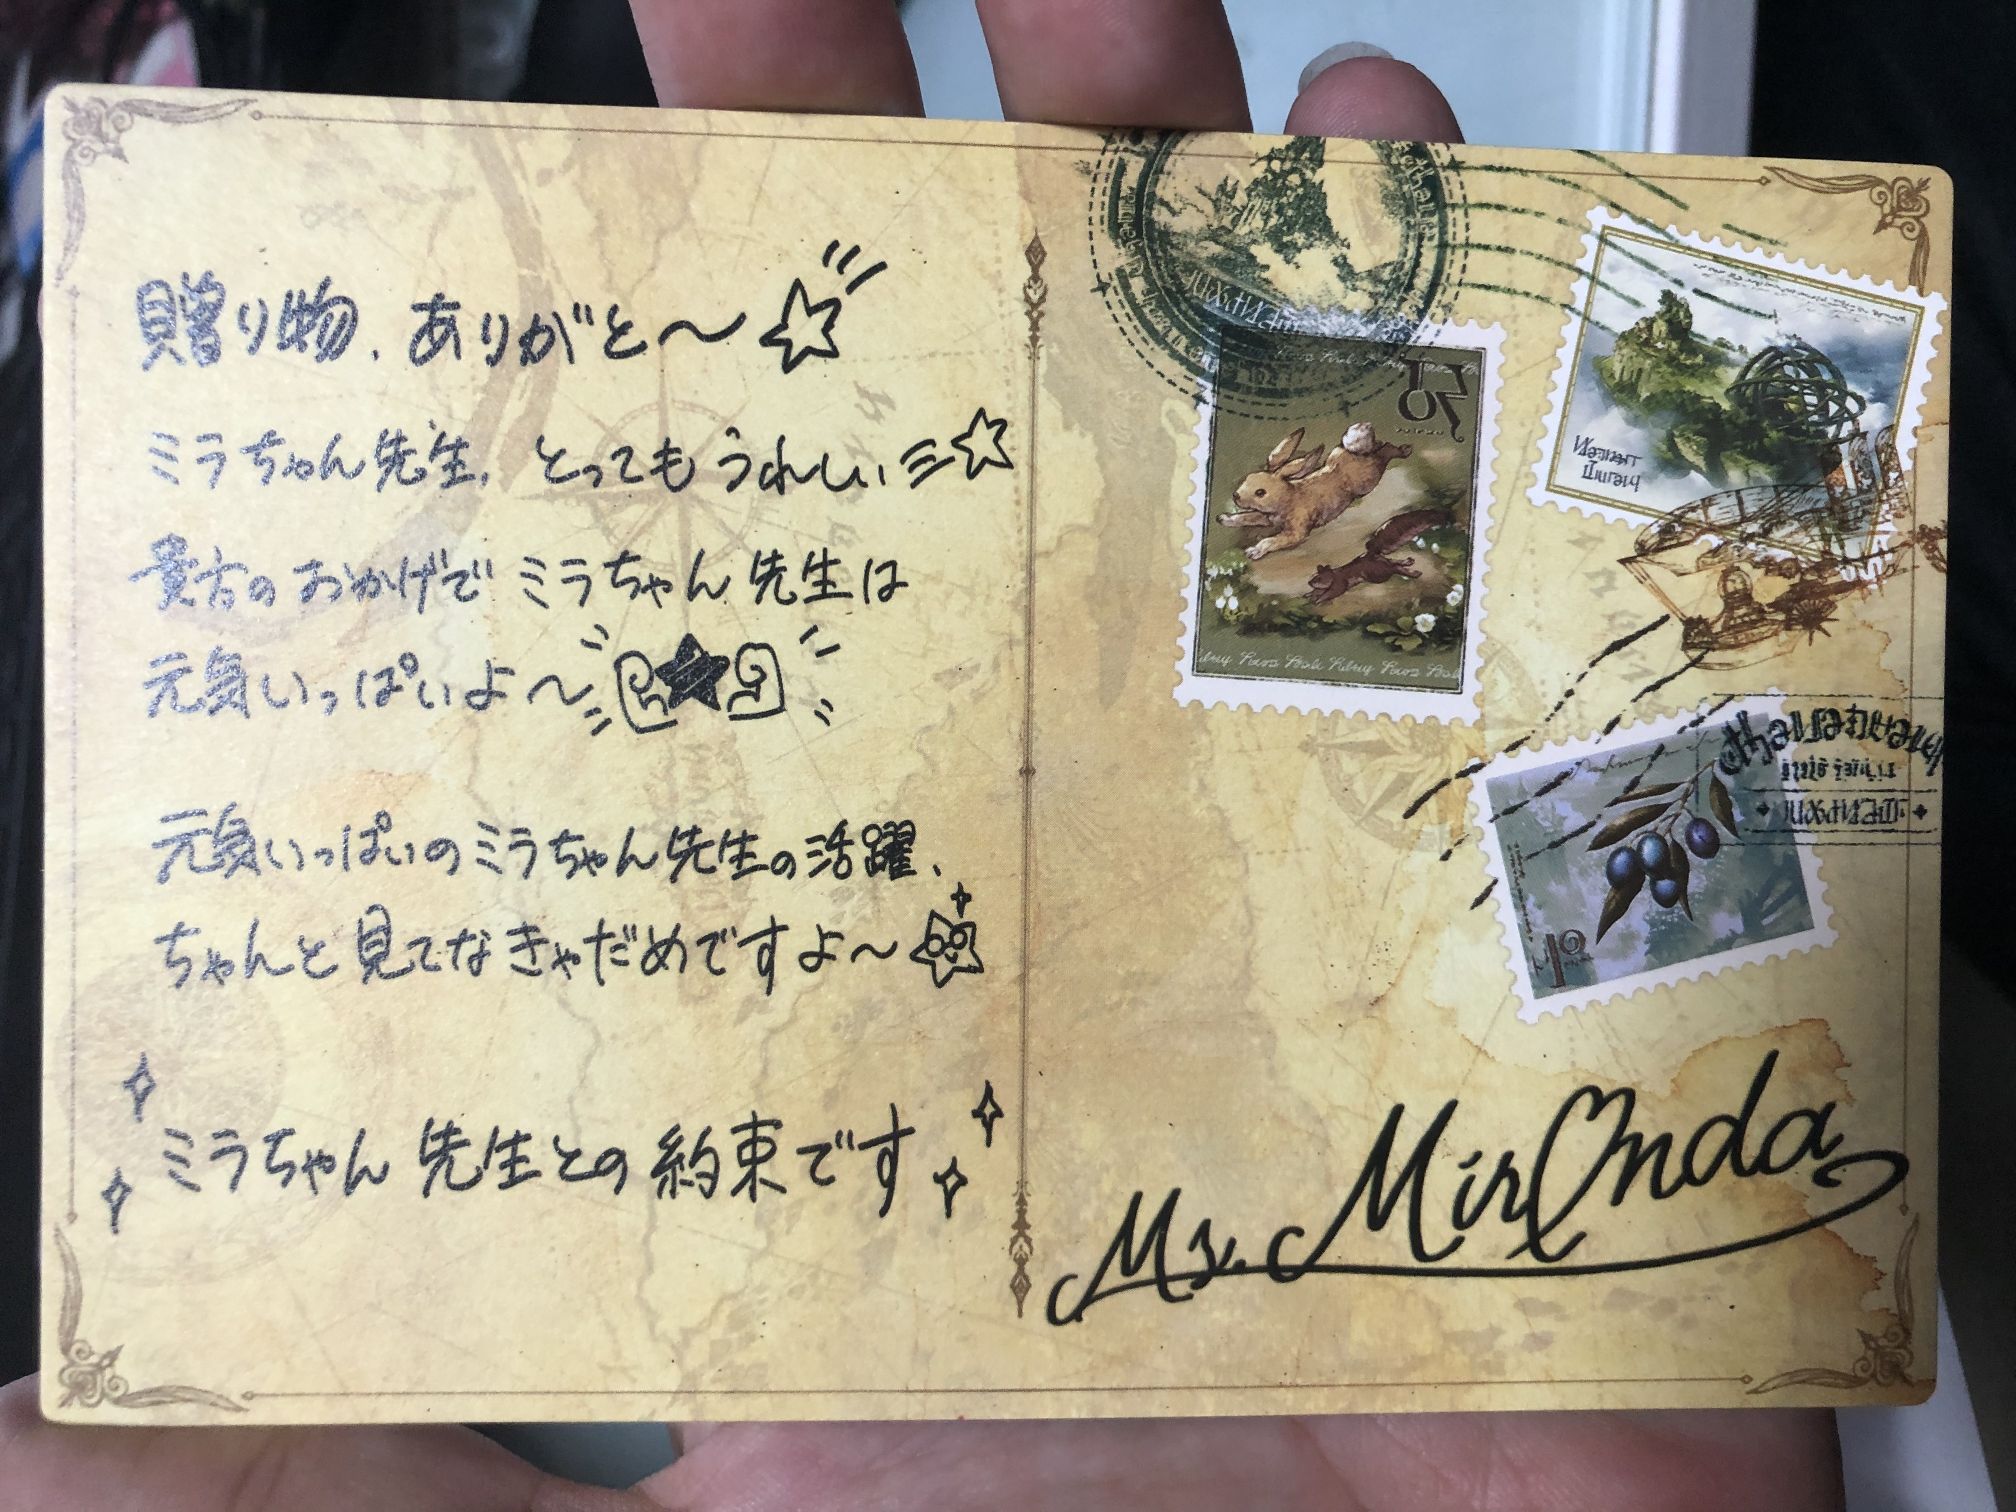 贈り物、ありがと〜☆
ミラちゃん先生、とってもうれしい☆
貴方のおかげでミラちゃん先生は
元気いっぱいよ〜
元気いっぱいのミラちゃん先生の活躍、
ちゃんと見てなきゃだめですよ〜
ミラちゃん先生との約束です
Ms. MirOnda